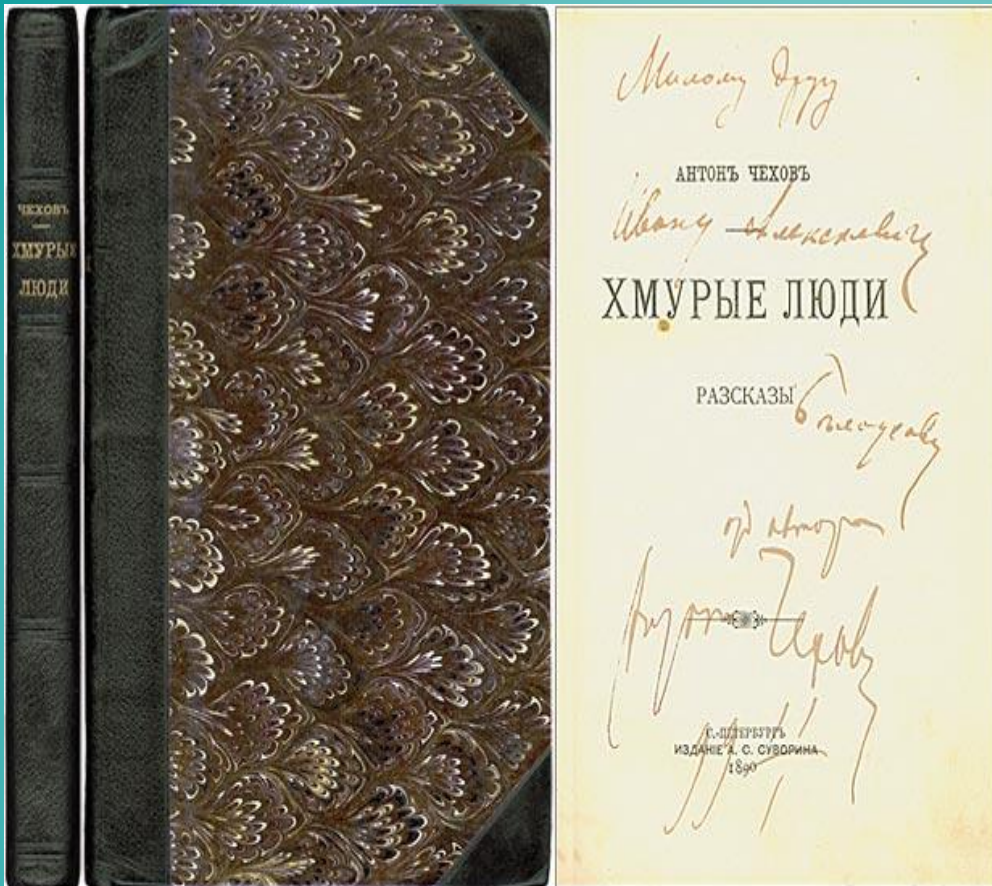 ЧЕХОВЪ
ХМУРЫЕ
ЛЮДИ
Милому другу
АНТОНЪ ЧЕХОВЪ
Ивану Алексеевичу
ХМУРЫЕ ЛЮДИ
РАЗСКАЗЫ
Бѣлоусову
от автора
Антон Чехов
С.-ПЕТЕРБУРГЪ
ИЗДАНІЕ А. С. СУВОРИНА
1890